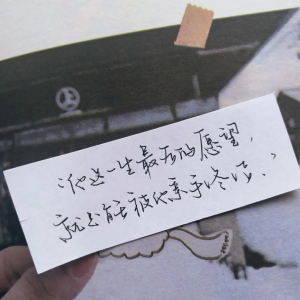 ‘他这一生最后的愿望，
就是能被他亲手终结。’